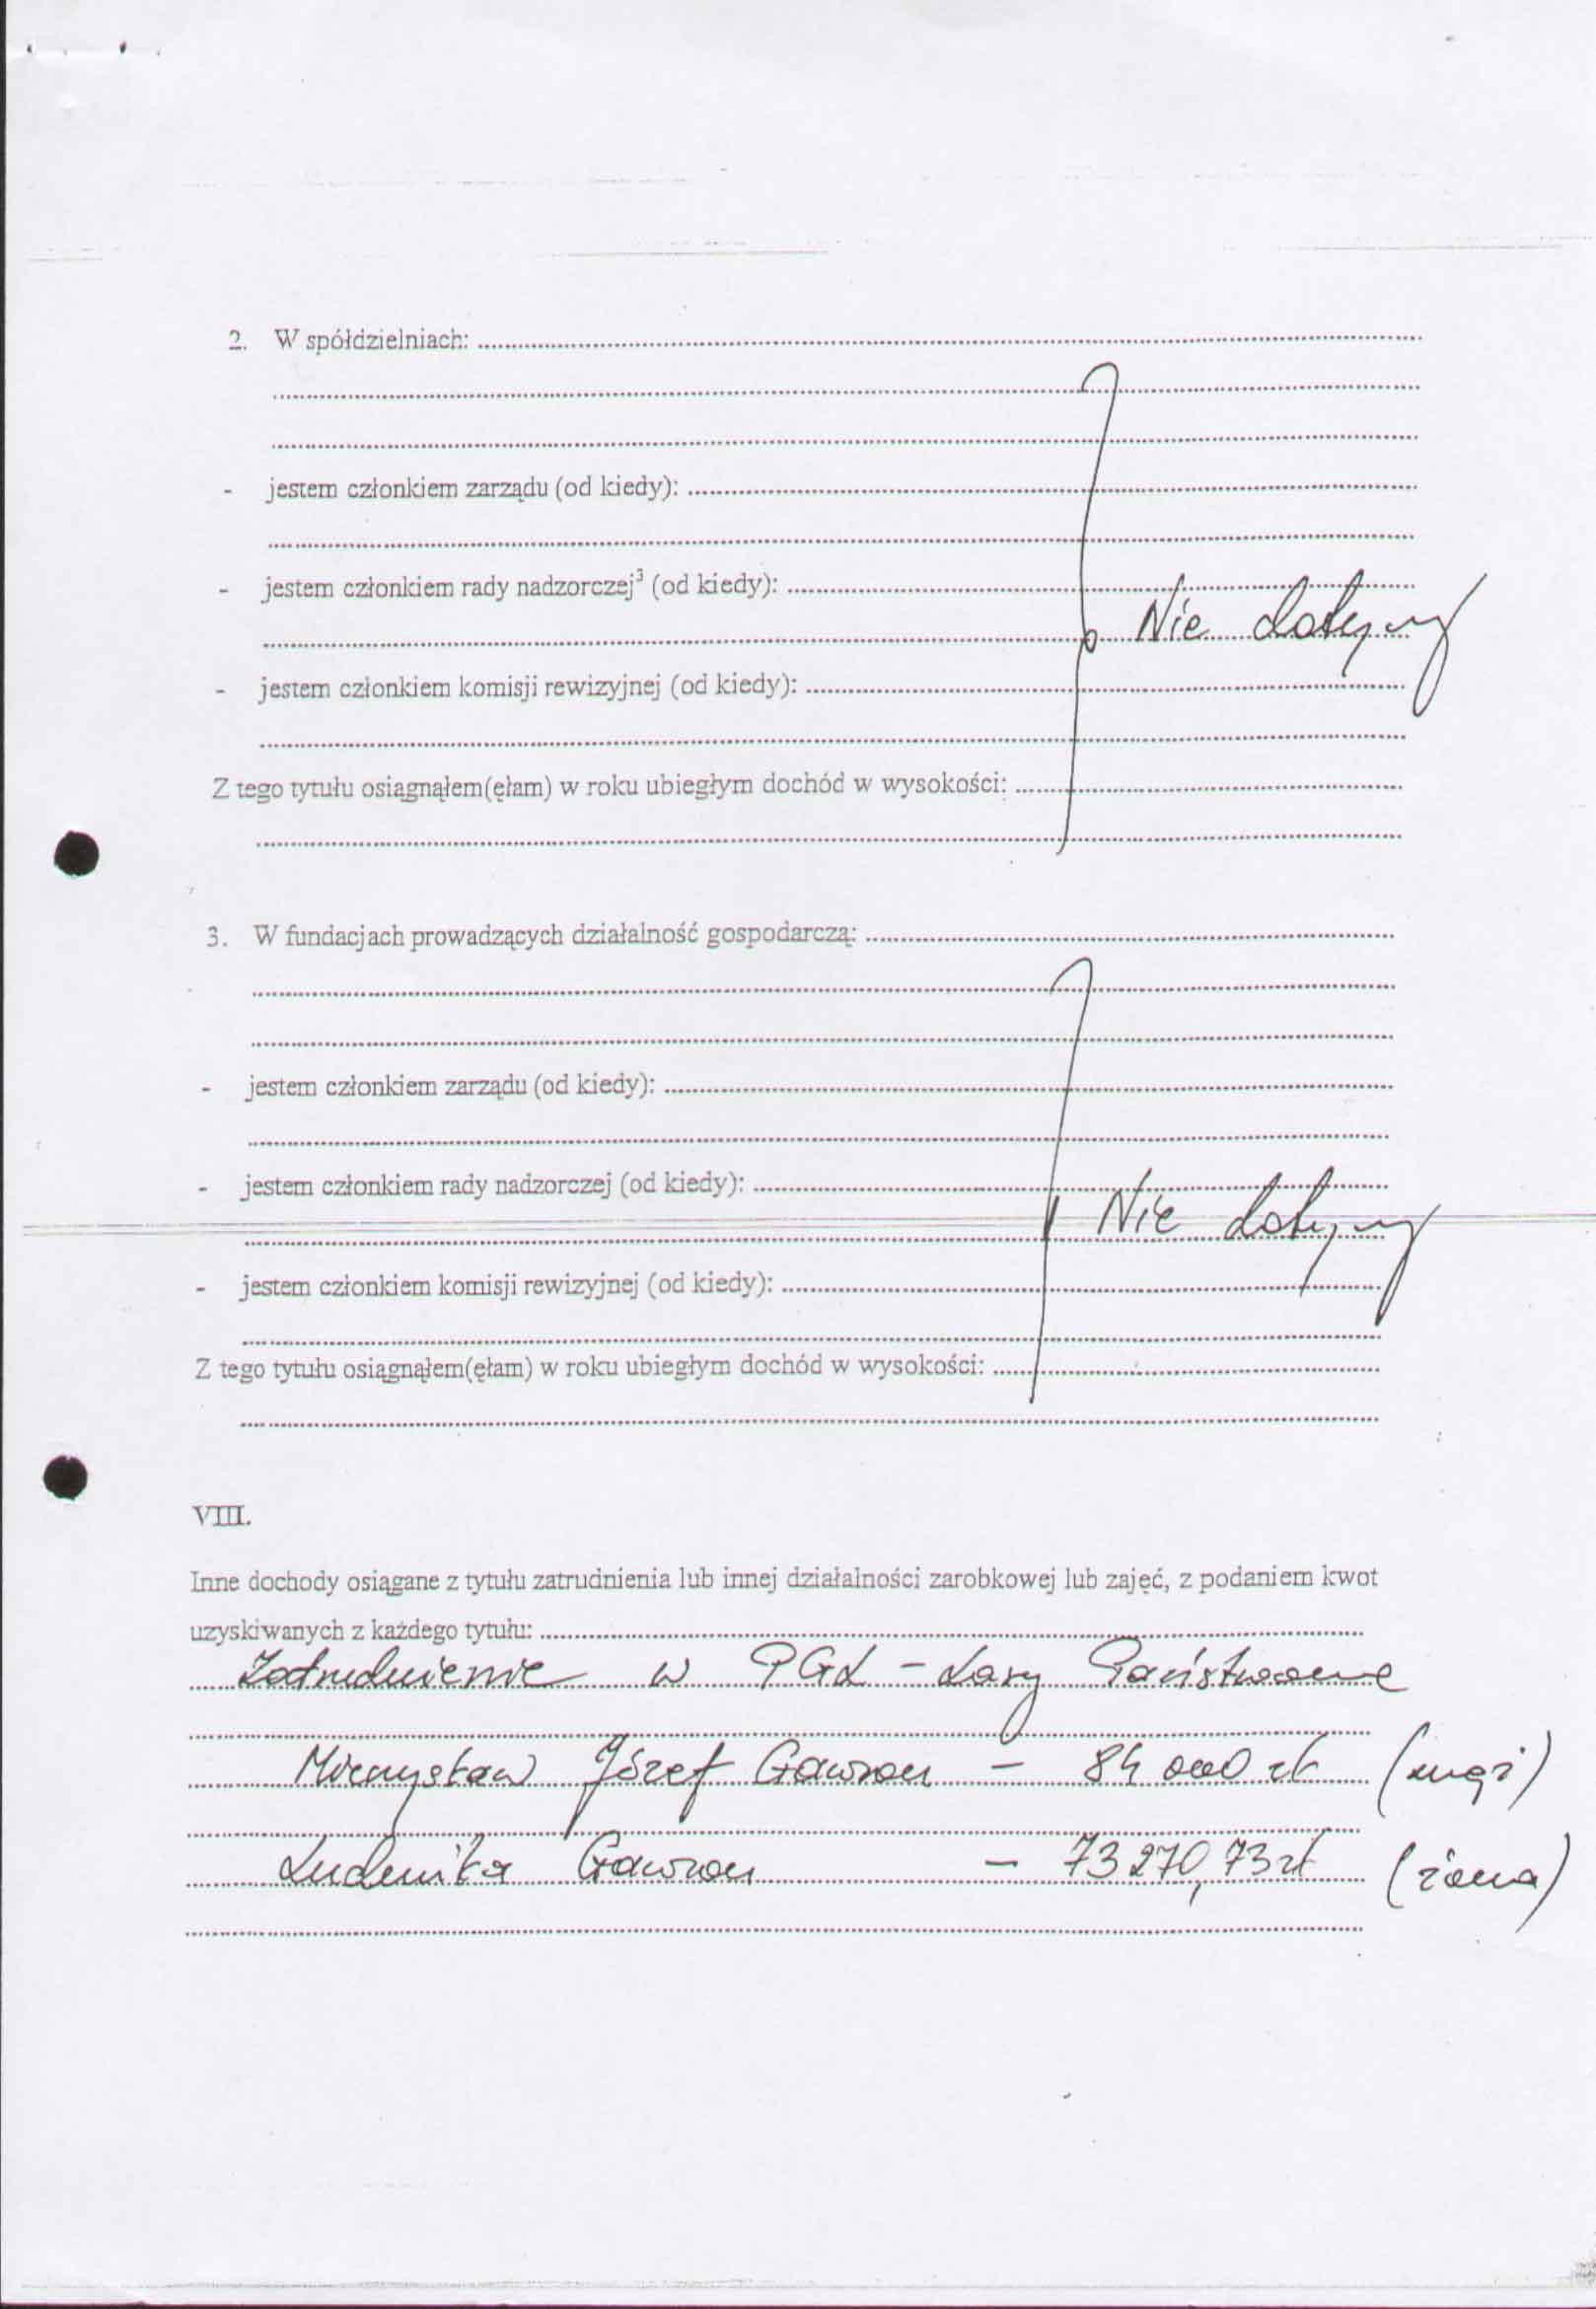 2. W spółdzielniach:
- jestem członkiem zarządu (od kiedy):
- jestem członkiem rady nadzorczej³ (od kiedy):
Nie dotyczy
- jestem członkiem komisji rewizyjnej (od kiedy):
Z tego tytułu osiągnąłem(ęłam) w roku ubiegłym dochód w wysokości:
3. W fundacjach prowadzących działalność gospodarczą:
- jestem członkiem zarządu (od kiedy):
- jestem członkiem rady nadzorczej (od kiedy):
Nie dotyczy
- jestem członkiem komisji rewizyjnej (od kiedy):
Z tego tytułu osiągnąłem(ęłam) w roku ubiegłym dochód w wysokości:
VIII.
Inne dochody osiągane z tytułu zatrudnienia lub innej działalności zarobkowej lub zajęć, z podaniem kwot
uzyskiwanych z każdego tytułu:
Zatrudnienie w PGL - Lasy Państwowe
Józef Gawron - 84 000 zł (mąż)
Ludmiła Gawron - 73 270,73 zł (żona)